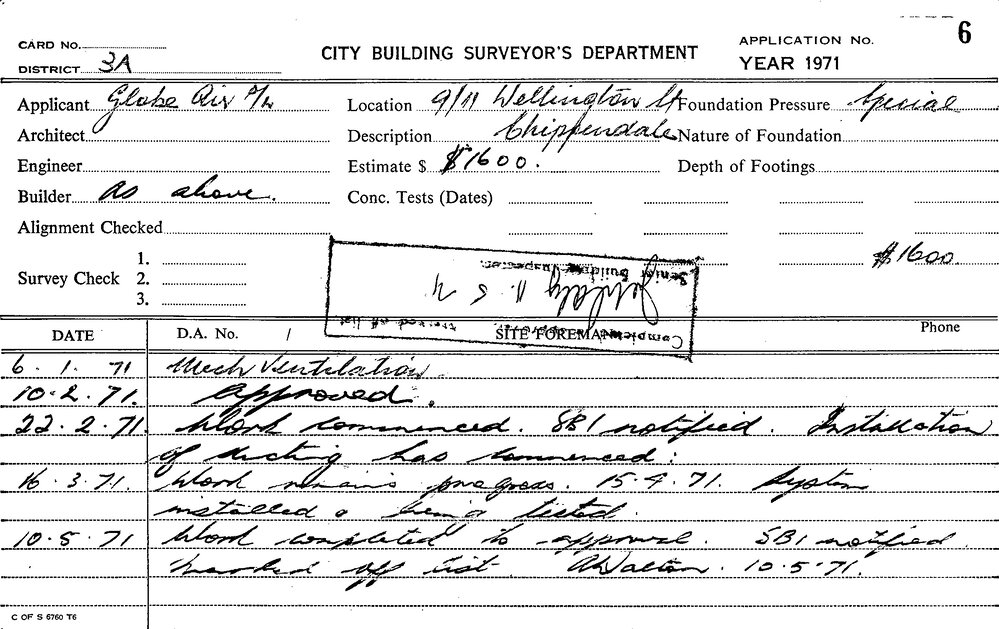 6
CARD No.
CITY BUILDING SURVEYOR'S DEPARTMENT
APPLICATION No.
DISTRICT 3A
YEAR 1971
Applicant Globe Air P/L
Location 9/11 Wellington St
Foundation Pressure Special
Architect
Description Chippendale
Nature of Foundation
Engineer
Estimate $ $1600.
Depth of Footings
Builder as above.
Conc. Tests (Dates)
Alignment Checked
$1600.
Survey Check
1.
2.
3.
Senior Building Inspector.
Completed
marked off list
DATE
D.A. No. /
SITE FOREMAN
Phone
6. 1. 71 Mech Ventilation
10.2.71. approved.
22.2.71. Work commenced. SBI notified. Installation
of ducting has commenced:
16.3.71. Work remains progress. 15.4.71. System
installed & being tested.
10.5.71 Work completed to approval. SBI notified.
marked off list. A Walton. 10.5.71.
C OF S 6760 T6